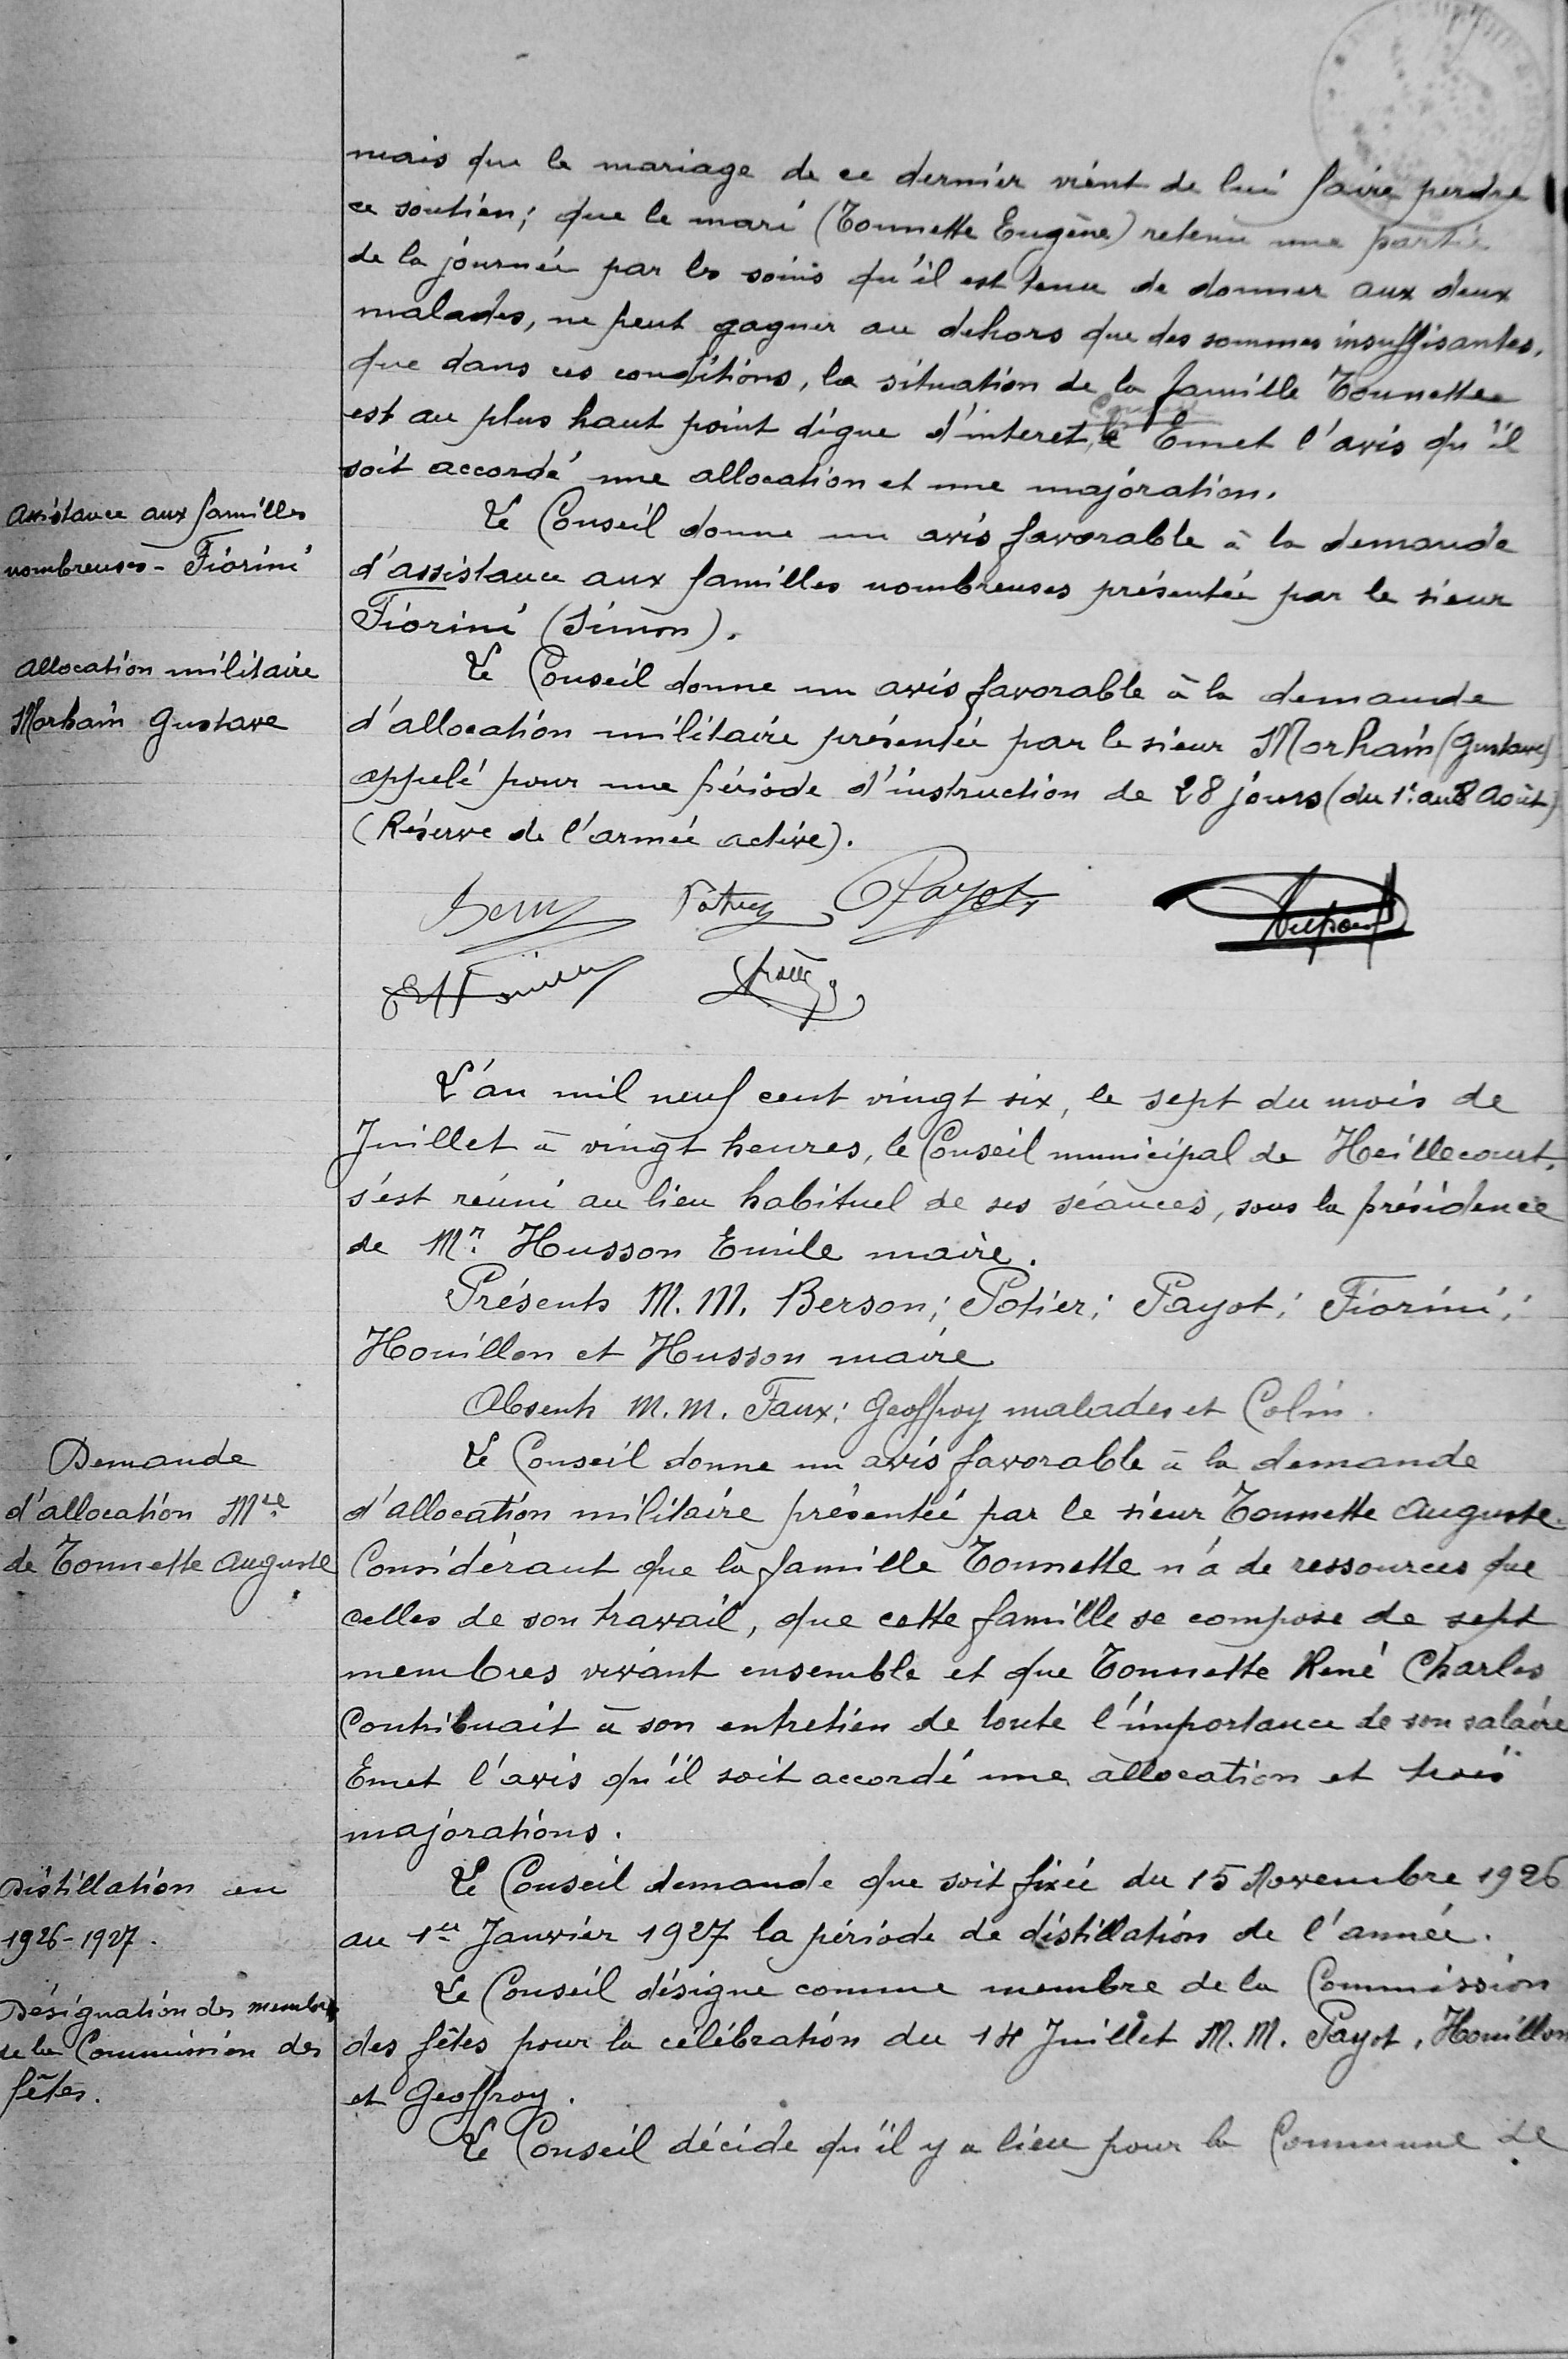 mais que le mariage de ce dernier vient de lui faire perdre
ce soutien; que le mari (Tonnette Eugène) retenu une partie
de la journée par les soins qu'il est tenu de donner aux deux
malades, ne peut gagner au dehors que des sommes insuffisantes,
que dans ces conditions, la situation de la famille Tonnette
est au plus haut point digne d'interet, Emet l'avis qu'il
soit accordé une allocation et une majoration.
Assistance aux familles
nombreuses - Fiorini
Le Conseil donne un avis favorable à la demande
d'assistance aux familles nombreuses présentée par le sieur
Fiorini (Simon).
Allocation militaire
Morhain Gustave
Le Conseil donne un avis favorable à la demande
d'allocation militaire présentée par le sieur Morhain (Gustave)
appelé pour une période d'instruction de 28 jours (du 1er au 8 Août)
(Réserve de l'armée active).
Payot
L'an mil neuf cent vingt six, le sept du mois de
Juillet à vingt heures, le Conseil municipal de Heillecourt,
s'est réuni au lieu habituel de ses séances, sous la présidence
de Mr. Husson Emile maire.
Présents M.M. Berson; Potier; Payot; Fiorini;
Houillon et Husson maire
Absents M.M. Faux; Geoffroy malades et Colin.
Demande
d'allocation Mre
de Tonnette Auguste
Le Conseil donne un avis favorable à la demande
d'allocation militaire présentée par le sieur Tonnette Auguste.
Considérant que la famille Tonnette n'a de ressources que
celles de son travail, que cette famille se compose de sept
membres vivant ensemble et que Tonnette René Charles
Contribuait à son entretien de toute l'importance de son salaire
Emet l'avis qu'il soit accordé une allocation et trois
majorations.
Distillation en
1926-1927.
Le Conseil demande que soit fixée du 15 Novembre 1926
au 1er Janvier 1927 la période de distillation de l'année.
Désignation des membres
de la Commission des
fêtes.
Le Conseil désigne comme membre de la Commission
des fêtes pour la célébration du 14 Juillet M.M. Payot, Houillon
et Geoffroy.
Le Conseil décide qu'il y a lieu pour la Commune de